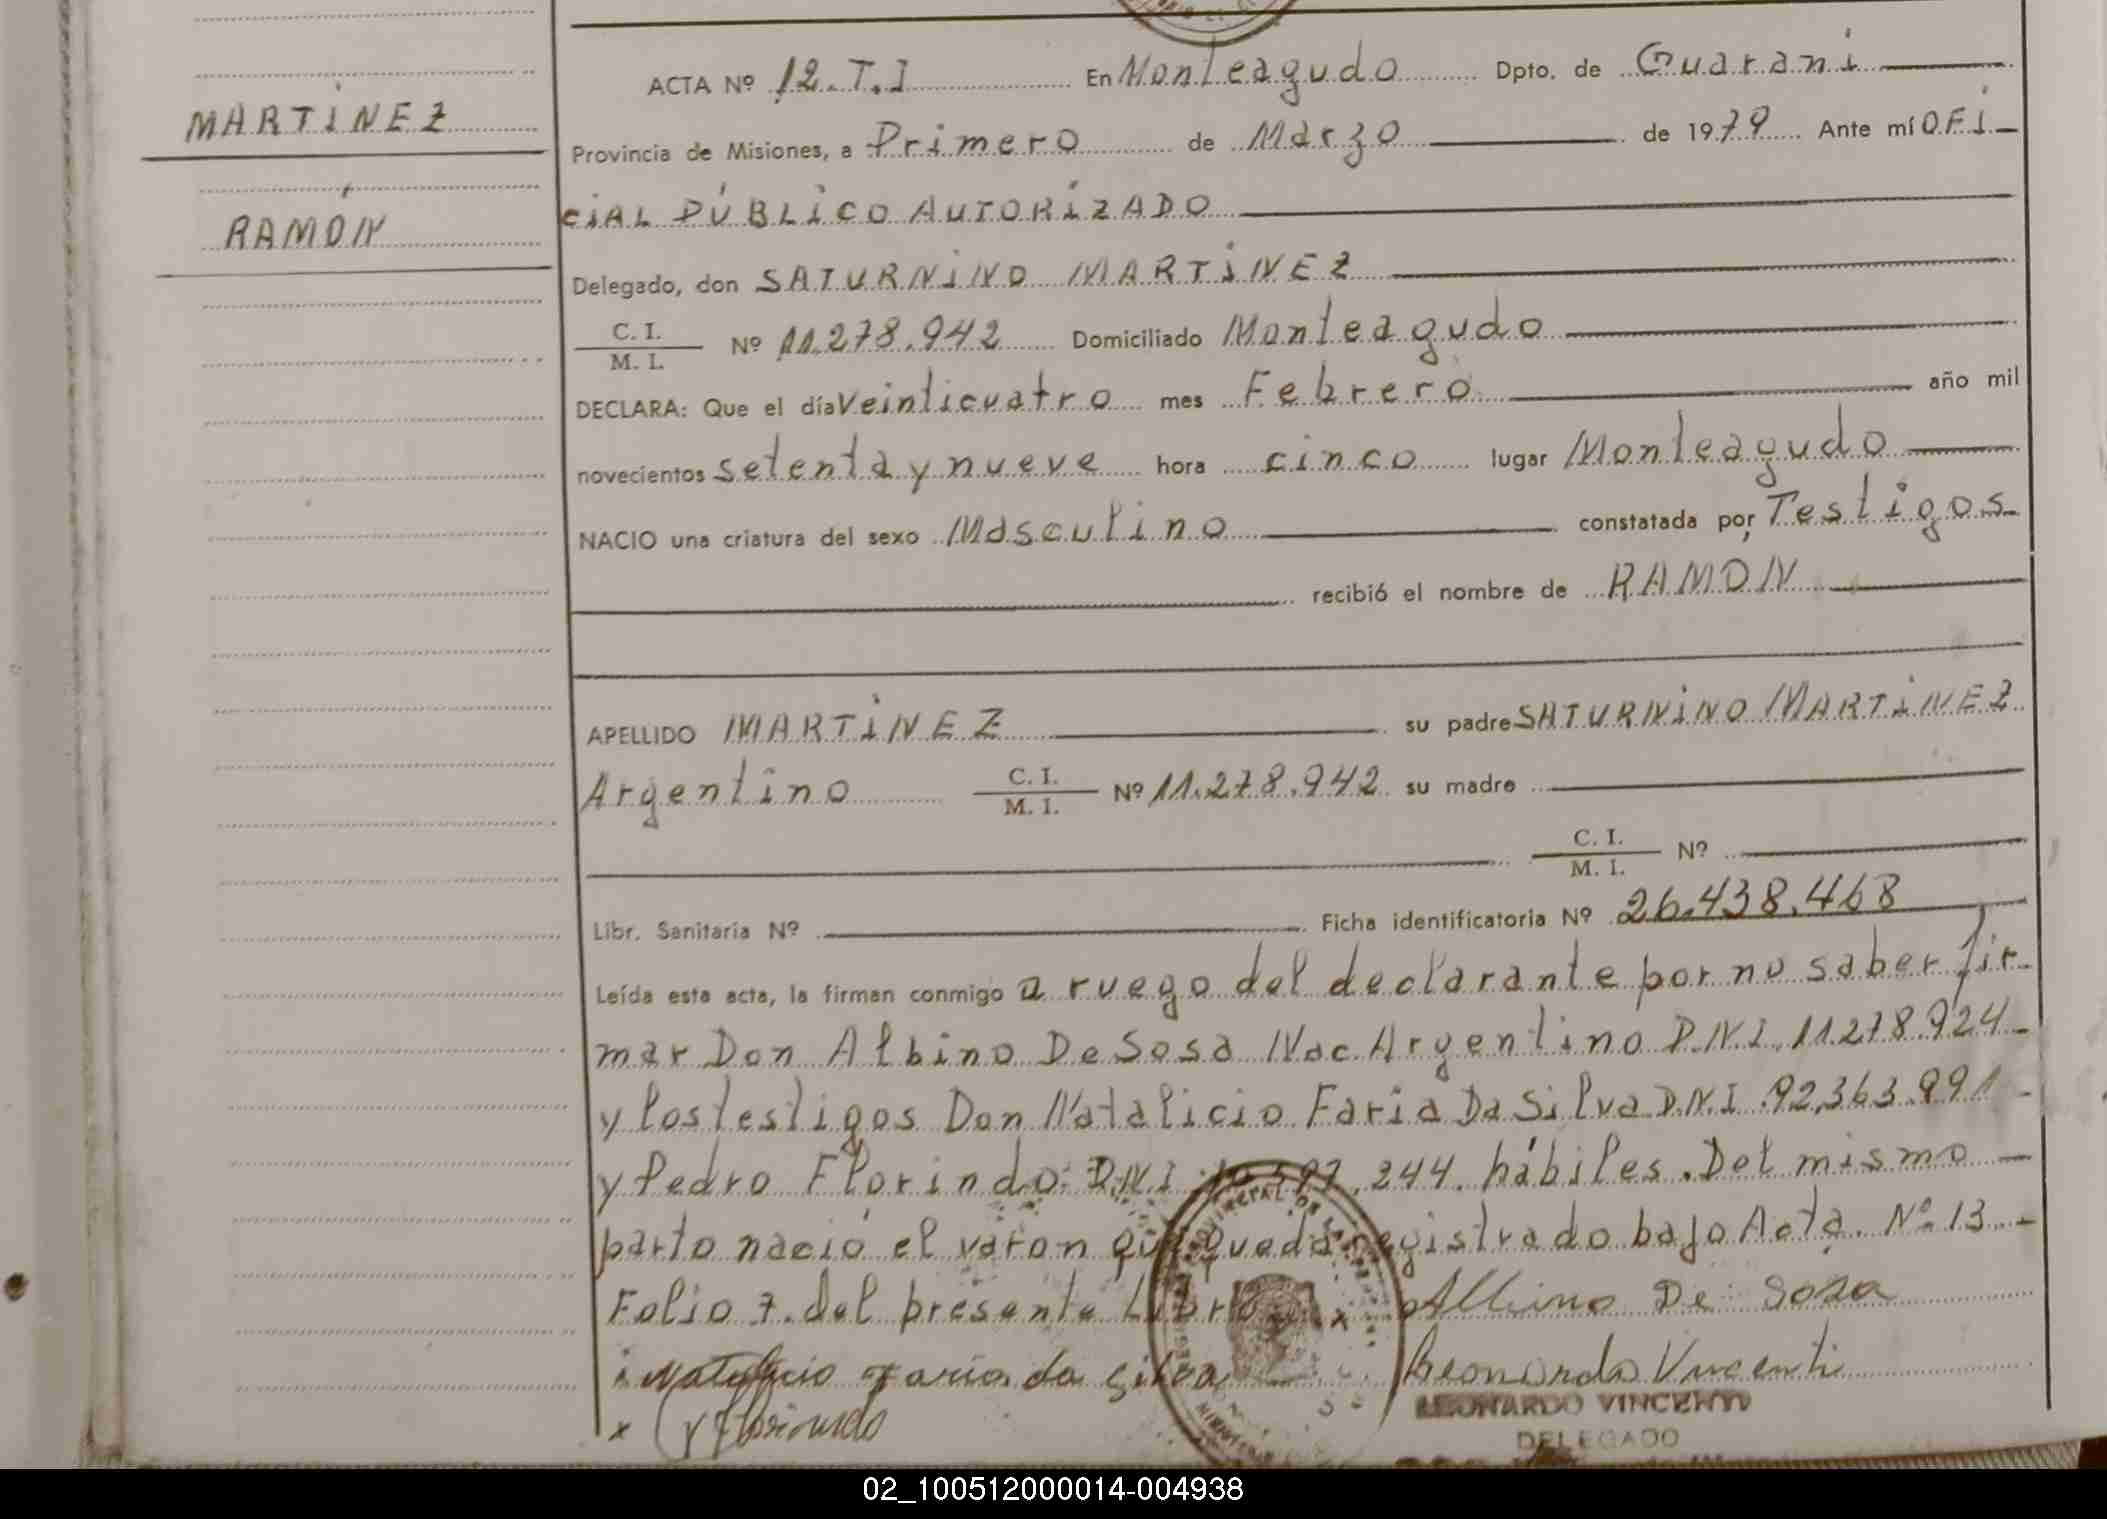 MARTÍNEZ
RAMÓN
ACTA Nº 12. T. I En Monteagudo Dpto. de Guaraní
Provincia de Misiones, a Primero de Marzo de 1979 Ante mí OFI-
CIAL PÚBLICO AUTORIZADO
Delegado, don SATURNINO MARTÍNEZ
C. I.
M. I. Nº 11.278.942 Domiciliado Monteagudo
DECLARA: Que el día veinticuatro mes Febrero año mil
novecientos setenta y nueve hora cinco lugar Monteagudo
NACIO una criatura del sexo Masculino constatada por Testigos
recibió el nombre de RAMON
APELLIDO MARTÍNEZ su padre SATURNINO MARTÍNEZ
Argentino C. I. M. I. Nº 11.278.942 su madre
C. I. M. I. Nº
Libr. Sanitaria Nº Ficha identificatoria Nº 26.438.468
Leída esta acta, la firman conmigo a ruego del declarante por no saber fir-
mar Don Albino De Sosa Nac. Argentino D.N.I. 11.278.924-
y los testigos Don Natalicio Faria Da Silva D.N.I. 92.363.991-
y Pedro Florindo: D.N.I. .244. hábiles. Del mismo -
parto nació el varon que queda registrado bajo Acta. Nº 13 -
Folio 7. del presente Libro x Albino De Sosa
Natalicio Faria da Silva Leonardo Vincenti
x Florindo LEONARDO VINCENTI
DELEGADO
02_100512000014-004938